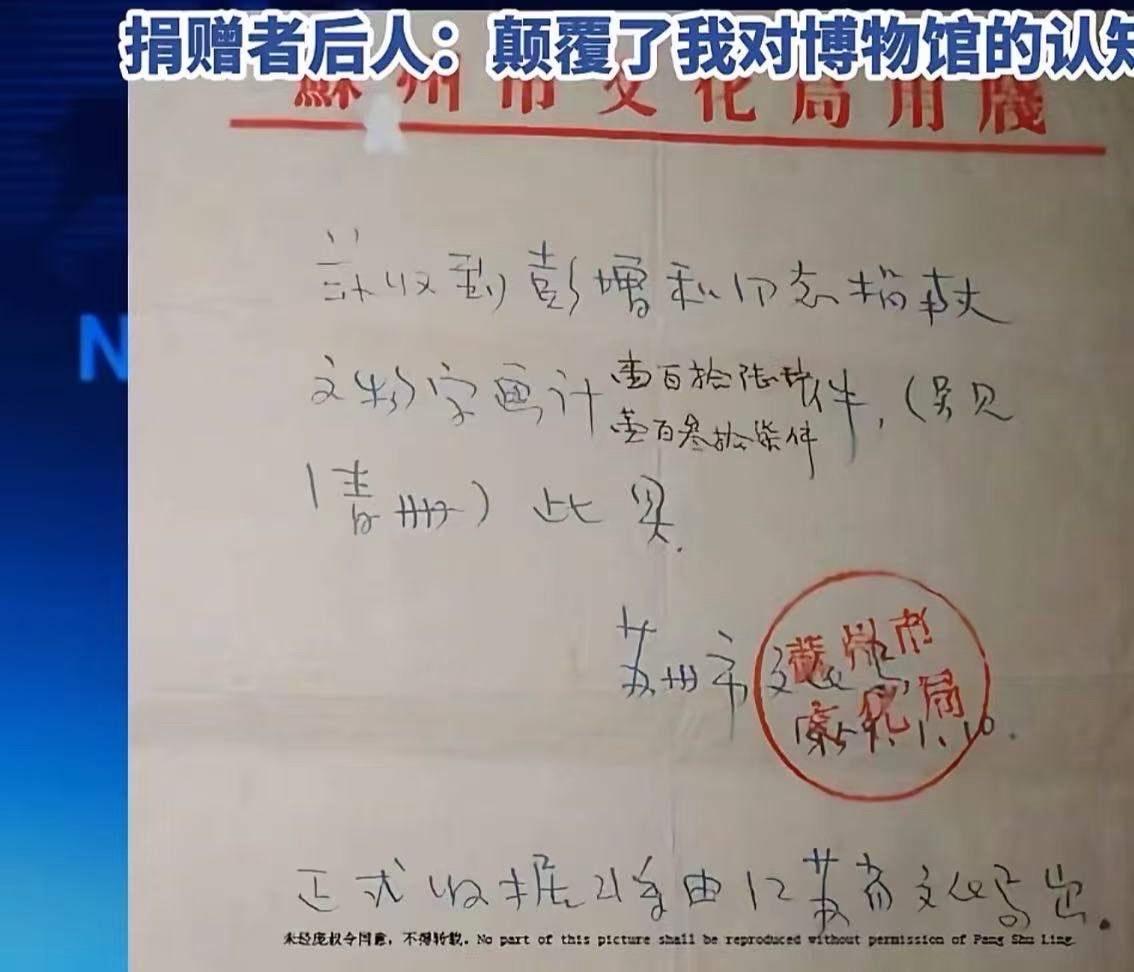 捐赠者后人：颠覆了我对博物馆的认知
蘇州市文化局用牋
兹收到彭增和同志捐献
文物字画计壹百拾陆件，（另见
壹百叁拾柒件
清册）此具.
苏州市文化局
1959.1.10.
蘇州市
文化局
正式收据将由江苏省文化局出.
未经庞叔令同意，不得转载。No part of this picture shall be reproduced without permission of Pang Shu Ling.